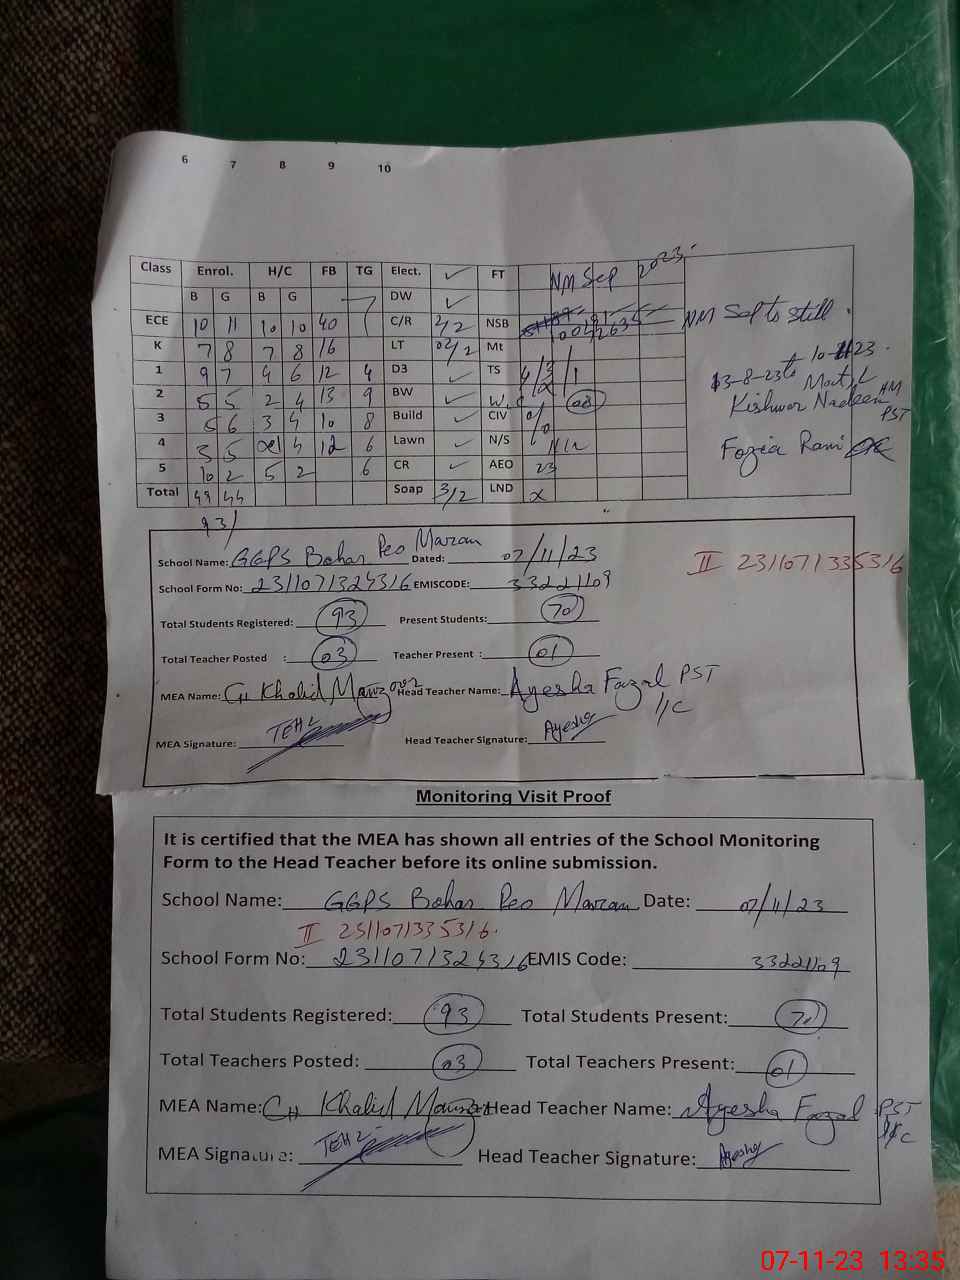 6 7 8 9 10
Class Enrol. H/C FB TG Elect. ✓ FT NM Sep 2023
B G B G DW ✓
ECE 10 11 10 10 40 C/R 2/2 NSB NM Sep to still
K 7 8 7 8 16 LT 02/2 Mt
1 9 7 4 6 12 4 D3 ✓ TS 4/3/1 13-8-23 to 10-11-23
2 5 5 2 4 13 9 BW ✓ 08 Kishwar Nadeem HM
3 5 6 3 4 10 8 Build ✓ CIV PST
4 3 5 4 12 6 Lawn ✓ N/S Nil Fozia Rani
5 10 2 5 2 6 CR ✓ AEO 23
Total 49 44 Soap 3/2 LND x
93/
School Name: GGPS Bahar Peo Mazam Dated: 07/11/23
II 2311071335316
School Form No: 2311071324316 EMISCODE: 33221109
Total Students Registered: 93 Present Students: 70
Total Teacher Posted : 03 Teacher Present : 01
MEA Name: CH Khalid Manzoor Head Teacher Name: Ayesha Fazal PST
I/C
MEA Signature: TEH 2 Head Teacher Signature: Ayesha
Monitoring Visit Proof
It is certified that the MEA has shown all entries of the School Monitoring
Form to the Head Teacher before its online submission.
School Name: GGPS Bahar Peo Mazam Date: 07/11/23
II 2311071335316.
School Form No: 2311071324316 EMIS Code: 33221109
Total Students Registered: 93 Total Students Present: 70
Total Teachers Posted: 03 Total Teachers Present: 01
MEA Name: CH Khalid Manzoor Head Teacher Name: Ayesha Fazal PST
I/C
MEA Signature: TEH 2 Head Teacher Signature: Ayesha
07-11-23 13:35